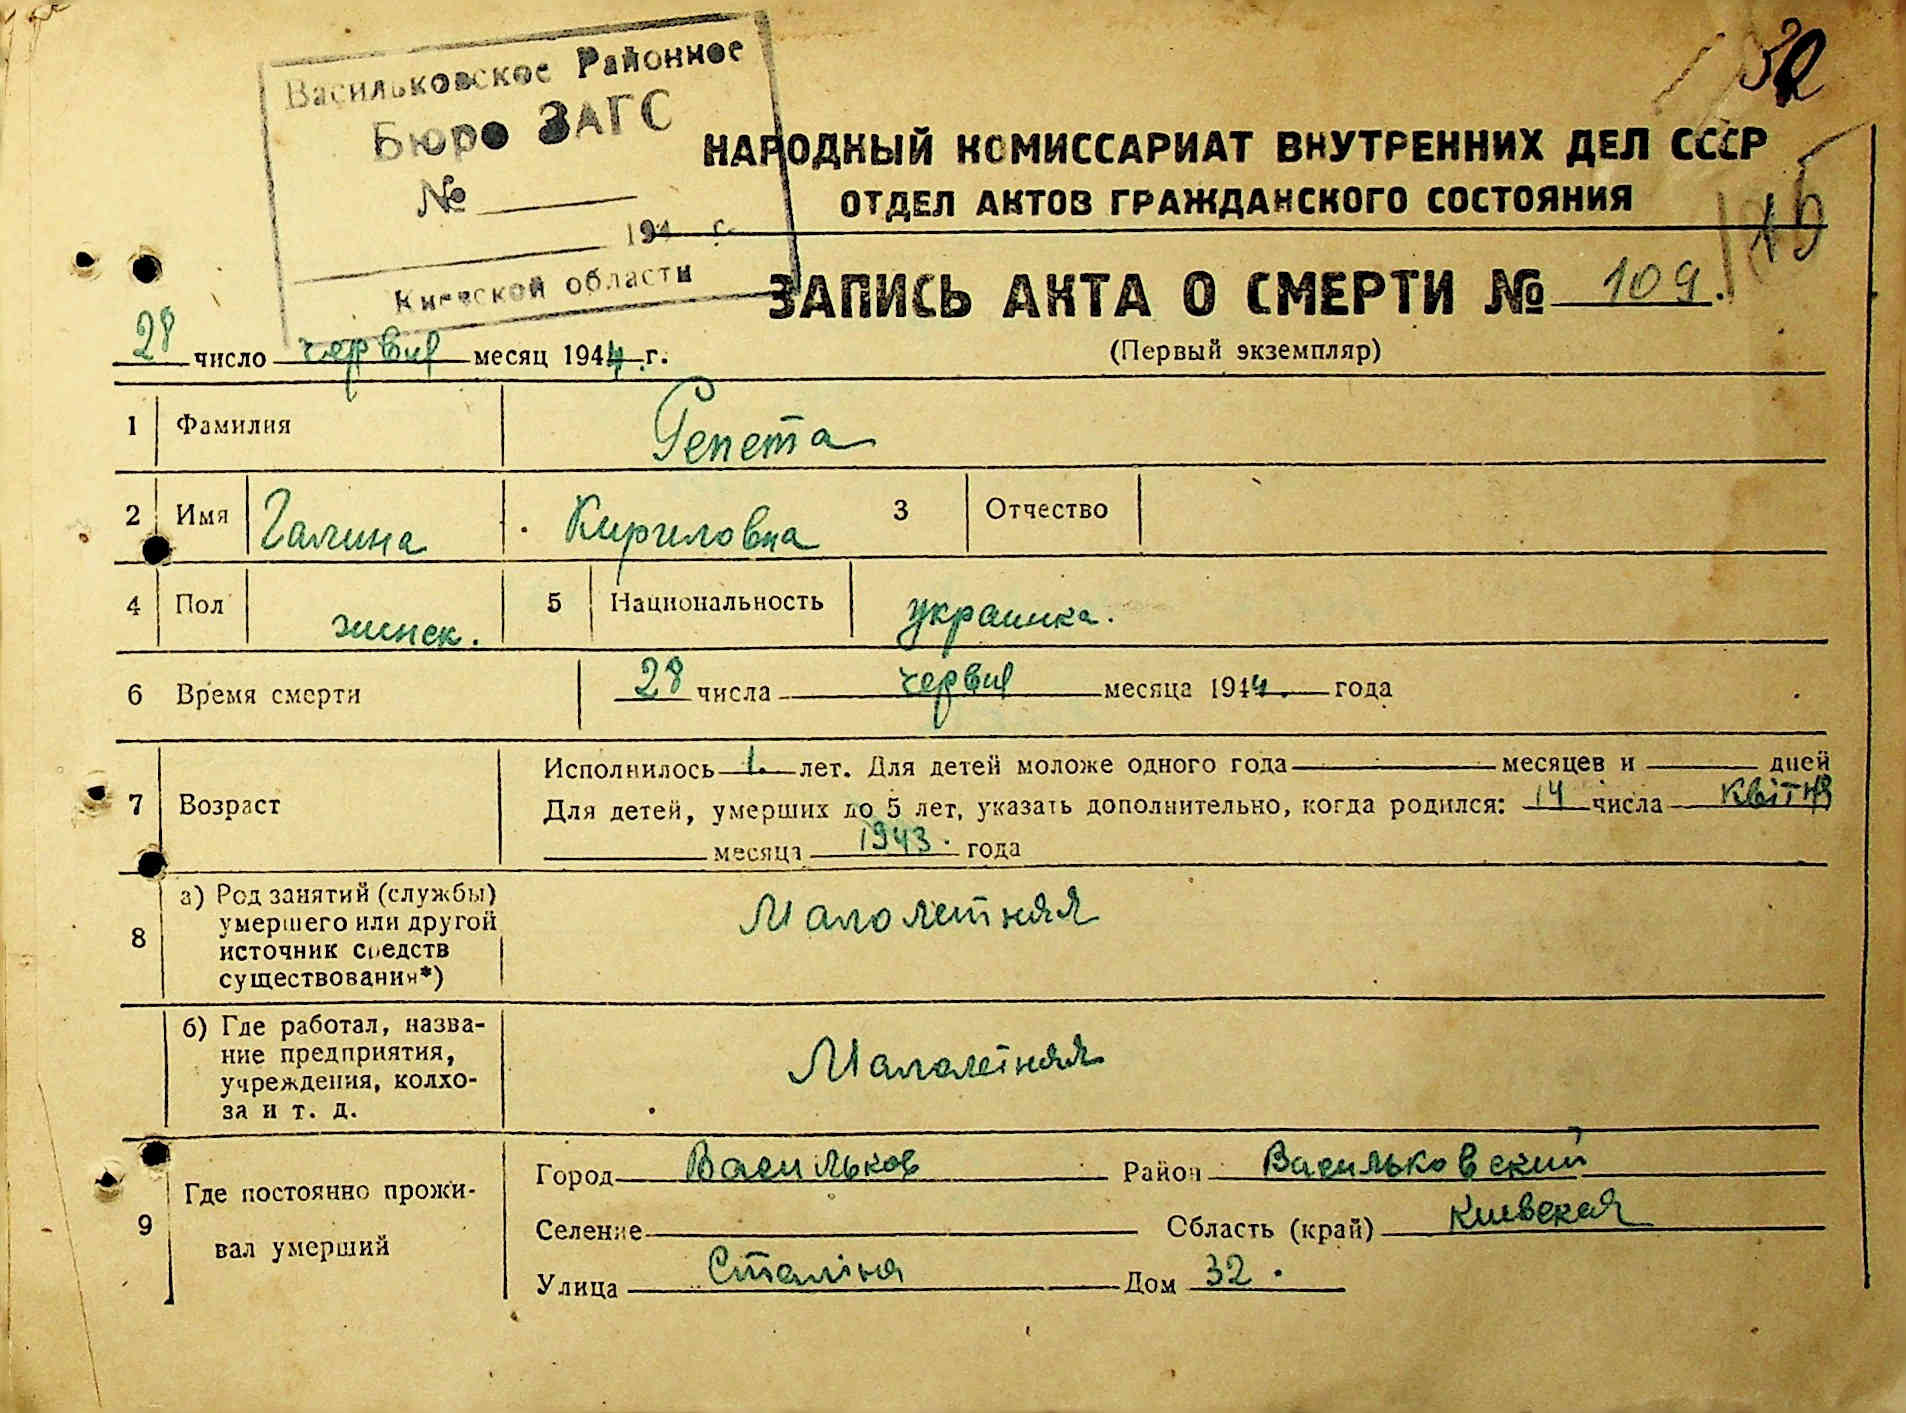 Васильковское Районное
Бюро ЗАГС
№
194 г.
Киевской области
НАРОДНЫЙ КОМИССАРИАТ ВНУТРЕННИХ ДЕЛ СССР
ОТДЕЛ АКТОВ ГРАЖДАНСКОГО СОСТОЯНИЯ
ЗАПИСЬ АКТА О СМЕРТИ № 109.
28 число червня месяц 1944 г.
(Первый экземпляр)
1 Фамилия Репета
2 Имя Галина Кириловна 3 Отчество
4 Пол жинек. 5 Национальность украинка.
6 Время смерти 28 числа червня месяца 1944. года
Исполнилось 1. лет. Для детей моложе одного года месяцев и дней
7 Возраст Для детей, умерших до 5 лет, указать дополнительно, когда родился: 14 числа квітня
месяца 1943. года
8 а) Род занятий (службы)
умершего или другой
источник средств
существования*)
Малолетняя
б) Где работал, назва-
ние предприятия,
учреждения, колхо-
за и т. д.
Малолетняя
9 Где постоянно прожи-
вал умерший
Город Васильков Район Васильковский
Селение Область (край) Киевская
Улица Сталіна Дом 32.